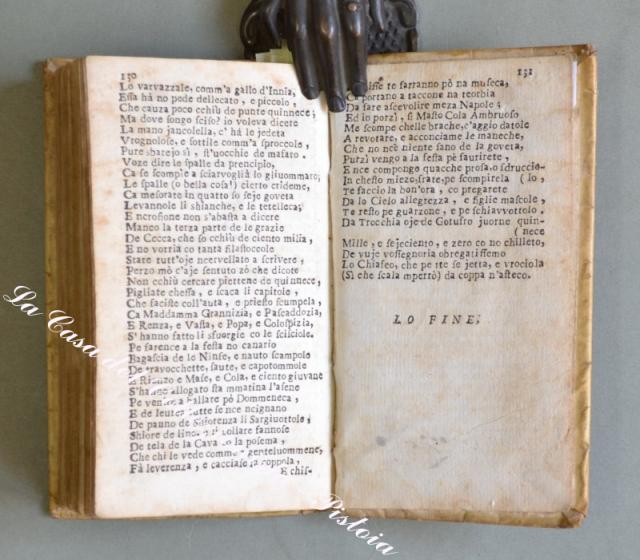 130
Lo varvazzale, comm'a gallo d'Innia,
Essa hà no pede dellecato, e piccolo,
Che cauza poco cchiù de punte quinnece;
Ma dove songo sciso? io voleva dicere
La mano jancolella, c'hà le jedeta
Vrognolose, e sottile comm'a sproccole,
Pure sbarejo sì, st'uocchie de masaro.
Voze dire le spalle da prencipio,
Ca se scompie a sciarvoglià lo gliuommaro;
Le spalle (o bella cosa!) cierto crideme,
Ca mesorate in quatto so seje goveta
Levannole li shianche, e le tetelleca;
E ncrosione non s'abasta a dicere
Manco la terza parte de le grazie
De Cecca, che so cchiù de ciento milia,
E no vorria co tanta filastoccole
Stare tutt'oje ncervellato a scrivere,
Perzo mò c'aje sentuto zò che dicote
Non cchiù cercare piettene de quinnece,
Pigliate chessa, e scaca li capitole,
Che faciste coll'auta, e priesto scumpela,
Ca Maddamma Grannizia, e Pascaddozia,
E Renza, e Vasta, e Popa, e Colospizia,
S'hanno fatto li sfuorgie co le scisciole.
Pe sarence a la festa no canario
Bagascia de le Ninfe, e nauto scampolo
De travocchette, saute, e capotommole
E Rienzo e Mase, e Cola, e ciento giuvane
S'hanno allogato sta mmatina l'asene
Pe venire a ballare pò Dommeneca,
E de leuter tutte se nce ncignano
De panno de Shiorenza li Sargiuottole;
Shiore de lino a li collare fannose
De tela de la Cava co la posema,
Che chi le vede comme gentelùommene,
Fà leverenza, e cacciase la coppola,
E chis-
131
te sarranno pò na museca,
Ca portano a taccone na teorbia
Da fare ascevolire meza Napole;
Ed io porzì, si Masto Cola Ambruoso
Me scompe chelle brache, c'aggio datole
A revotare, e acconciame le maneche,
Che no nce niente sano de la goveta,
Purzì vengo a la festa pè saurirete,
E nce compengo quacche prosa, o sdruccio-
In chesto miezo, srate, pe scompirela (lo,
Te faccio la bon'ora, co pregarete
Da lo Cielo allegrezza, e figlie mascole,
Te resto pe guarzone, e pe schiavvottolo.
Da Trocchia oje de Gotufro juorne quin-
(nece
Mille, e sejeciento, e zero co no chilleto,
De vuje vossegnoria obregatissemo
Lo Chiafeo, che pe tte se jetta, e vrociola
(Sì che scala mpertò) da coppa n'asteco.
LO FINE.
La Casa de
Pistoia